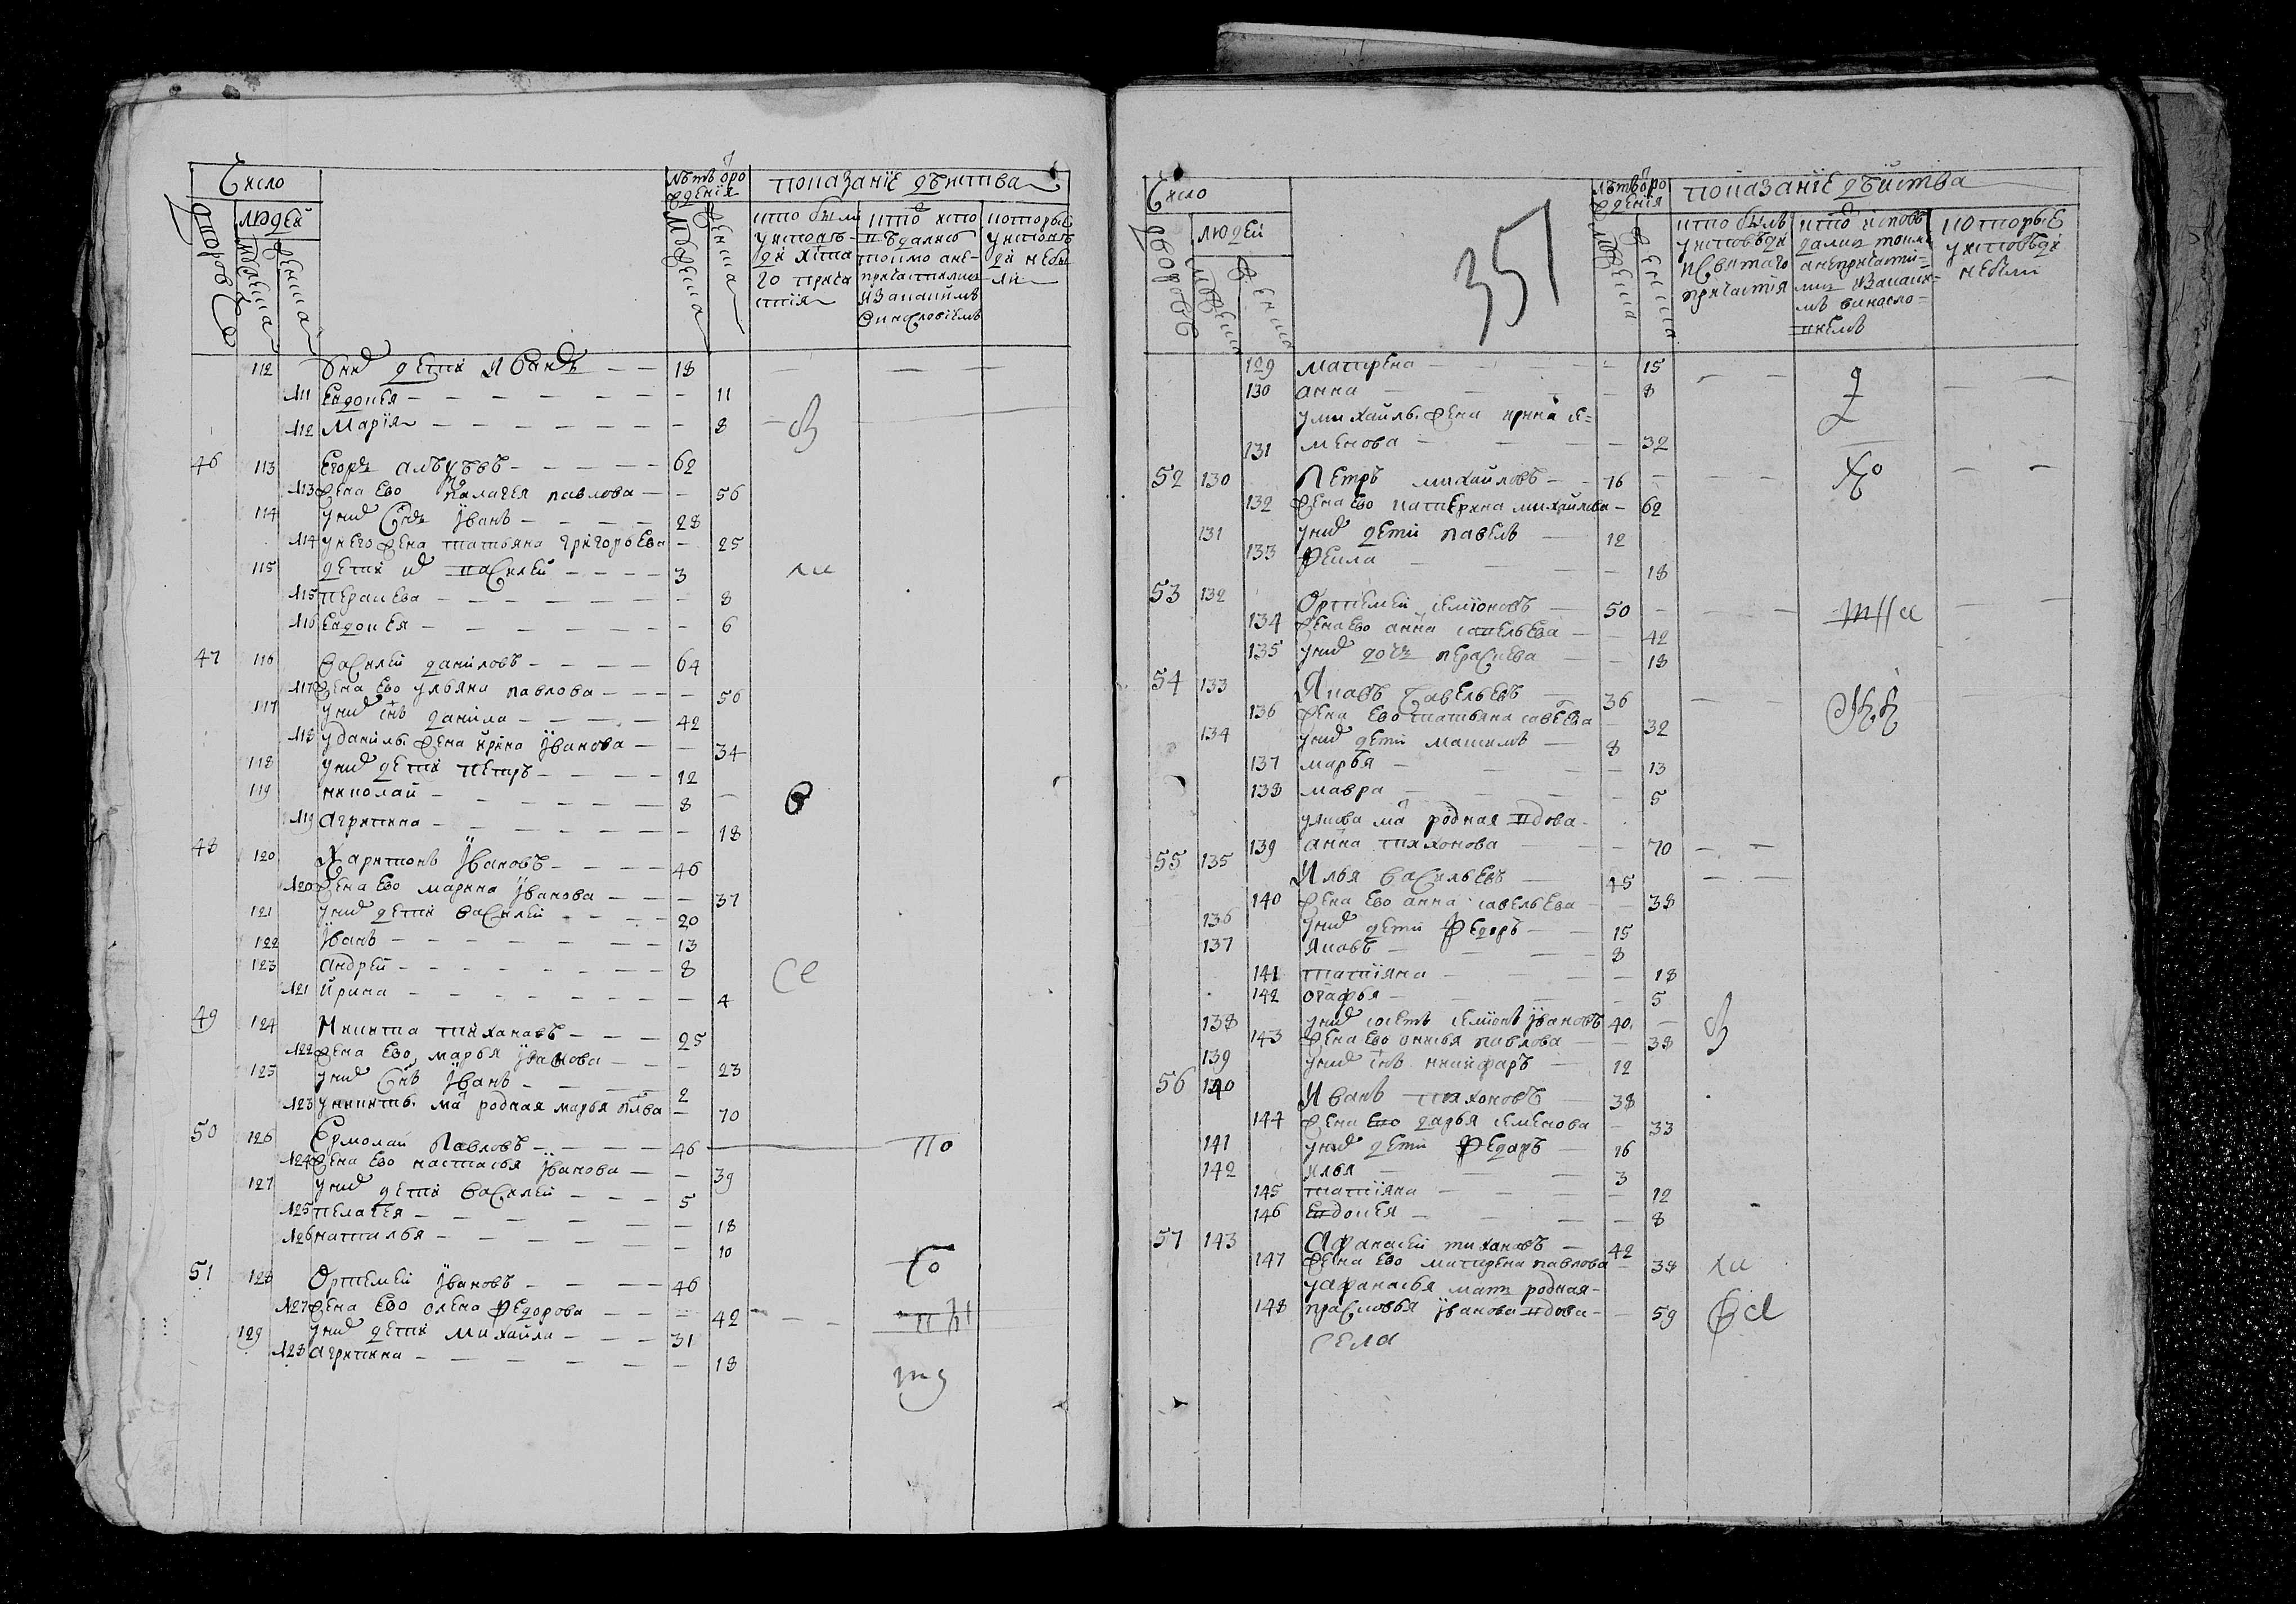 Число
людей
дворовъ
мужеска
женска
лѣтъ от ро
жденїя
мужеска
женска
показанїе дѣиства
кто были
у исповѣ
ди и с͠та
го прича
стия
кто испо
вѣдались
токмо а не
причастились
и за каким
винословіемъ
которые
у исповѣ
ди не бы
ли
112 У них дети Иванъ 18
111 Евдокея 11
112 Марїя 8
46 113 Егоръ 62
113 жена ево Палагея Павлова 56
114 у них с͠нъ Иванъ 28
114 у него жена Татьяна Григорьева 25
115 дети их Василей 3
115 Парасковa 8
116 Евдокея 6
47 116 Василей Даниловъ 64
117 жена ево Ульяна Павлова 56
117 у них с͠нъ Данила 42
118 у Данилы жена Ирина Иванова 34
118 у них дети Петръ 12
119 Николай 8
119 Агрипина 18
48 120 Харитонъ Ивановъ 46
120 жена ево Марина Иванова 37
121 у них дети Василей 20
122 Иванъ 13
123 Андрей 8
121 Ирина 4
49 124 Никита Тихановъ 25
122 жена ево Марья Иванова 23
125 у них с͠нъ Иванъ 2
123 у Никиты мать родная Марья 70
50 126 Ермолай Павловъ 46 по
124 жена ево Настасья Иванова 39
127 у них дети Василей 5
125 Пелагея 18
126 Наталья 10
51 128 Ортемей Ивановъ 46
127 жена ево Олена Федорова 42
129 у них дети Михайла 31
128 Агрипина 18
Число
людей
дворовъ
мужеска
женска
351
лѣтъ от ро
жденїя
мужеска
женска
показанїе дѣиства
кто былъ
у исповѣди
и святаго
причастия
кто исповѣ
дались токмо
а не причасти-
лись и за каки-
мъ винасло-
виемъ
которые
у исповѣди
не были
129 Матрена 15
130 Анна 8
у Михайлы жена Ирина Се=
131 менова 32
52 130 Петръ Михайловъ 76
132 жена ево Катерина Михайлова 62
131 у них дети Павелъ 12
133 Фекла 18
53 132 Ортемей Семїоновъ 50
134 жена ево Анна Савельева 42
135 у них дочь Парасковa 18
54 133 Яковъ Савельевъ 36
136 жена ево Татьяна 32
134 у них дети Максимъ 8
137 Марья 13
138 Мавра 5
у Якова мать родная вдова
139 Анна Тихонова 70
55 135 Илья Васильевъ 45
140 жена ево Анна Савельева 38
136 у них дети Федоръ 15
137 Яковъ 8
141 Татїяна 18
142 Огафья 5
138 у них Семїонъ Ивановъ 40
143 жена ево Павлова 38
139 у них с͠нъ Никифаръ 12
56 140 Иванъ Тихоновъ 38
144 жена ево Дарья Семенова 33
141 у них дети Федаръ 16
142 Илья 3
145 Татїяна 12
146 Евдокея 8
57 143 Афанасей Тихановъ 42
147 жена ево Матрена Павлова 38
у Афанасья мать родная
148 Прасковья Иванова вдова 59
села